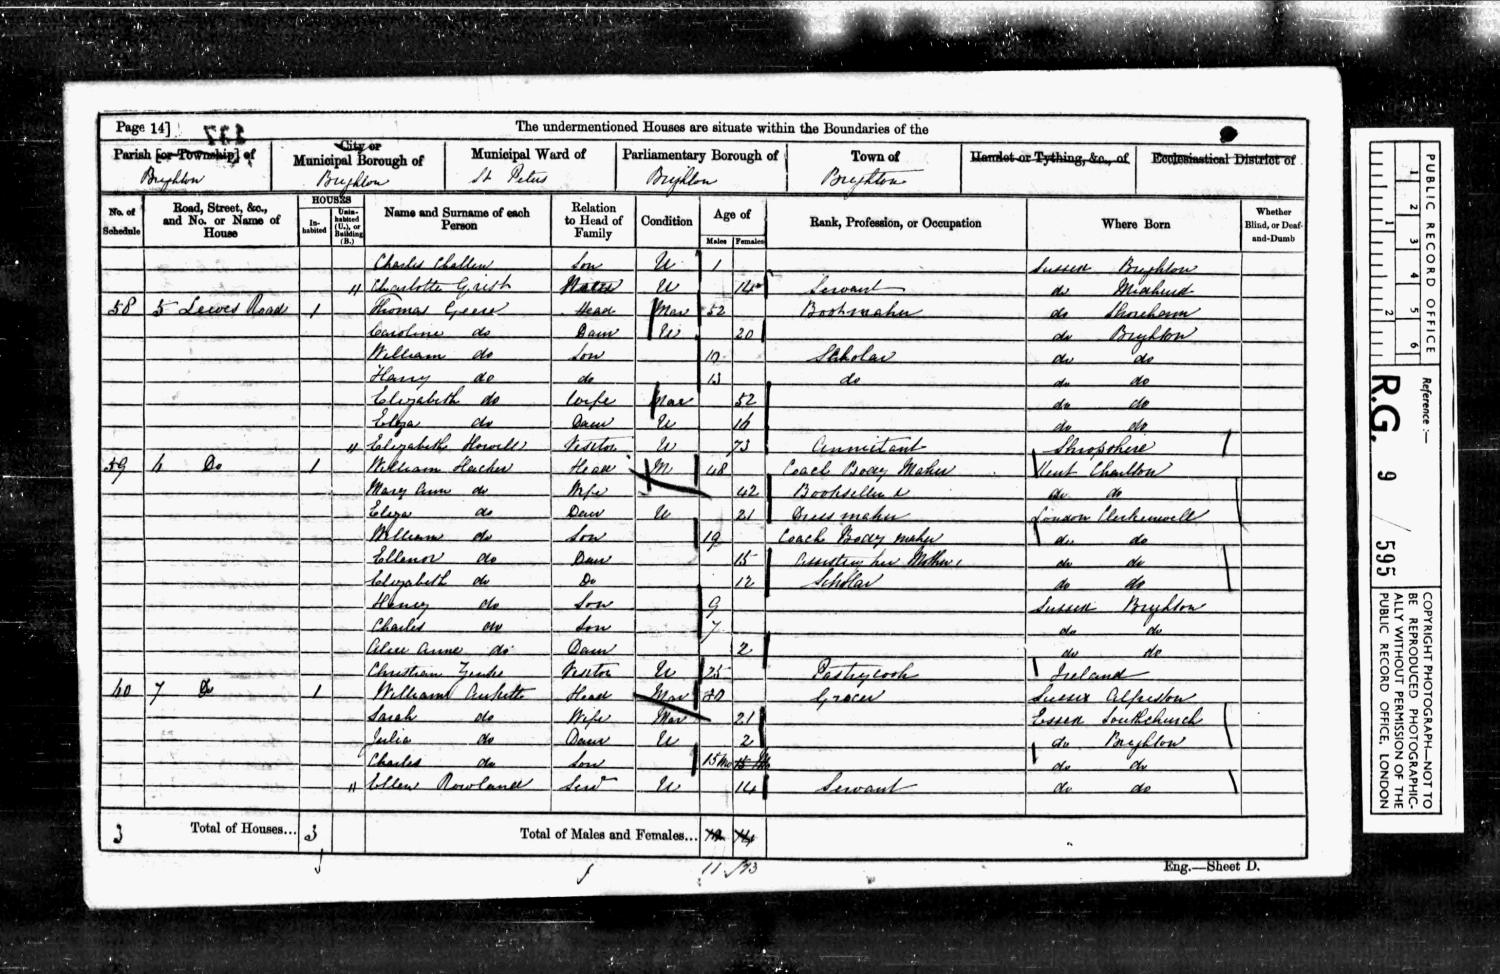 Page 14] 137
The undermentioned Houses are situate within the Boundaries of the
Parish [or Township] of
City or Municipal Borough of
Municipal Ward of
Parliamentary Borough of
Town of
Hamlet or Tything, &c., of
Ecclesiastical District of
Brighton Brighton St Peters Brighton Brighton
No. of Schedule
Road, Street, &c., and No. or Name of House
HOUSES
In-habited
Unin-habited (U.), or Building (B.)
Name and Surname of each Person
Relation to Head of Family
Condition
Age of
Males
Females
Rank, Profession, or Occupation
Where Born
Whether Blind, or Deaf-and-Dumb
Charles Challen Son U 1 Sussex Brighton
Charlotte Grist U 14 Servant do Midhurst
58 5 Lewes Road 1 Thomas Geere Head Mar 52 Bootmaker do Shoreham
Caroline do Daur U 20 do Brighton
William do Son 10 Scholar do do
Harry do do 13 do do do
Elizabeth do Wife Mar 52 do do
Eliza do Daur U 16 do do
Elizabeth Howell Visitor U 73 Annuitant Shropshire
59 6 Do 1 William Hacker Head M 48 Coach Body Maker Kent Charlton
Mary Ann do Wife 42 Bookseller do do
Eliza do Daur U 21 Dressmaker London Clerkenwell
William do Son 19 Coach Body maker do do
Ellenor do Daur 15 Assisting her Mother do do
Elizabeth do Do 12 Scholar do do
Henry do Son 9 Sussex Brighton
Charles do Son 7 do do
Alice Anne do Daur 2 do do
Christian Visitor U 25 Pastrycook Ireland
60 7 Do 1 William Head Mar Grocer Sussex Alfriston
Sarah do Wife Mar 21 Essex Southchurch
Julia do Daur U 2 do Brighton
Charles do Son 15 Mo do do
Ellen Rowland Servt U 14 Servant do do
3 Total of Houses... 3 Total of Males and Females... 12 14
11 13
Eng.—Sheet D.
PUBLIC RECORD OFFICE
1 2 3 4 5 6
1 2
Reference :—
R.G. 9 / 595
COPYRIGHT PHOTOGRAPH—NOT TO
BE REPRODUCED PHOTOGRAPHIC-
ALLY WITHOUT PERMISSION OF THE
PUBLIC RECORD OFFICE, LONDON